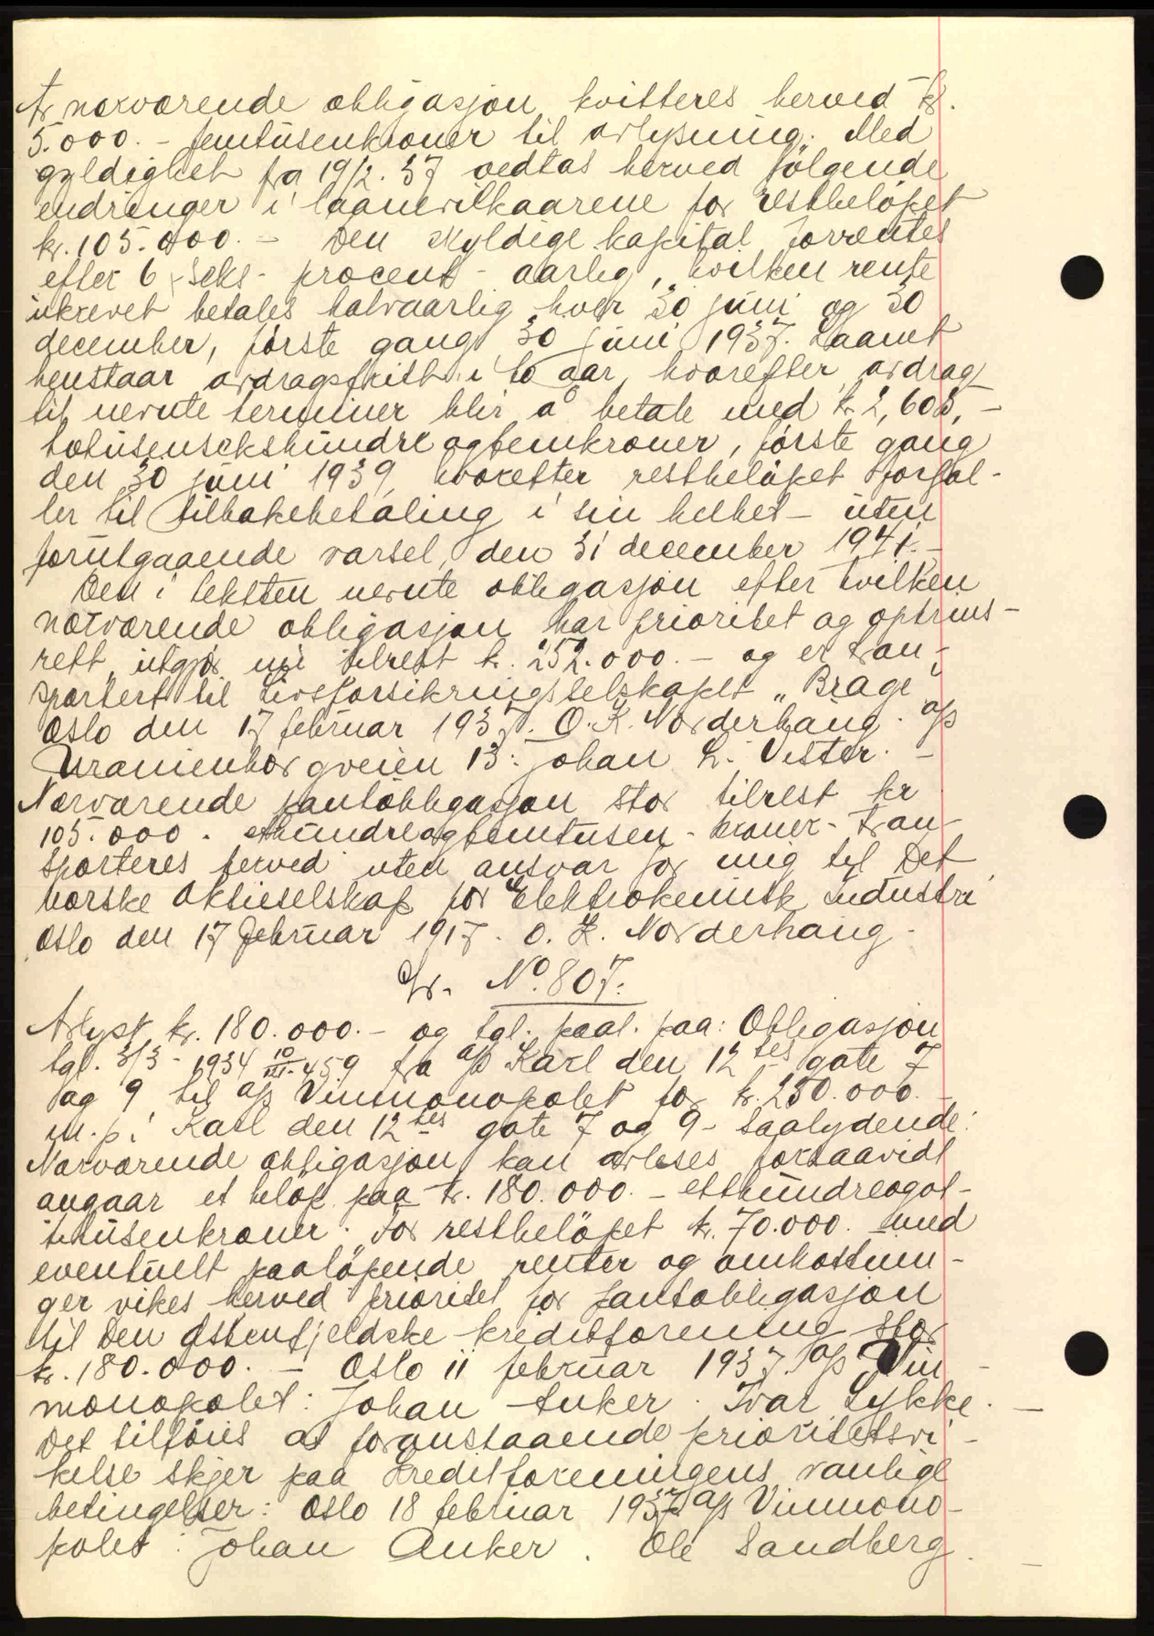 Av nærværende obligasjon kvitteres herved kr.
5.000.- femtusenkroner til avlysning. Med
gyldighet fra 19/2. 37 vedtas herved følgende
endringer i laanevilkaarene for restbeløpet
kr. 105.000.- Den skyldige kapital forrentes
efter 6 - seks - procent - aarlig, hvilken rente
ukrevet betales halvaarlig hver 30 juni og 30
december, første gang 30 juni 1937. Laanet
henstaar avdragsfritt i to aar, hvorefter avdrag
til nevnte terminer blir å betale med kr. 2,605,-
totusensekshundreogfemkroner, første gang
den 30 juni 1939, hvorefter restbeløpet forfal-
ler til tilbakebetaling i sin helhet - uten
forutgaaende varsel, den 31 december 1941.-
Den i teksten nevnte obligasjon efter hvilken
nærværende obligasjon har prioritet og optrins-
rett, utgjør nu tilrest kr. 252.000.- og er tran-
sportert til Livsforsikringsselskapet "Brage"
Oslo den 17 februar 1937. O. K. Norderhaug. A/S
Uranienborgveien 13: Johan L. Vister. -
Nærværende pantobligasjon stor tilrest kr
105.000. etthundreogfemtusen - kroner - tran-
sporteres herved uten ansvar for mig til Det
norske Aktieselskap for Elektrokemisk Industri
Oslo den 17 februar 1917. O. K. Norderhaug.
Nr. No. 807.
Avlyst kr. 180.000.- og tgl. paat. paa: Obligasjon
tgl. 3/3 - 1934 10/III-459 fra A/S Karl den 12tes gate 7
og 9 til A/S Vinmonopolet for kr. 250.000.-
m. p. i Karl den 12tes gate 7 og 9 - saalydende:
Nærværende obligasjon kan avleses forsaavidt
angaar et beløp paa kr. 180.000.- etthundreogot-
titusenkroner. For restbeløpet kr. 70.000. med
eventuelt paaløpende renter og omkostnin-
ger vikes herved prioritet for pantobligasjon
til Den Østenfjeldske kreditforening stor
kr. 180.000.- Oslo 11 februar 1937. A/S Vin-
monopolet: Johan Anker. Ivar Lykke. -
Det tilføies at foranstaaende prioritetsvi-
kelse skjer paa Kreditforeningens vanlige
betingelser: Oslo 18 februar 1937 A/S Vinmono-
polet: Johan Anker. Ole Sandberg. -